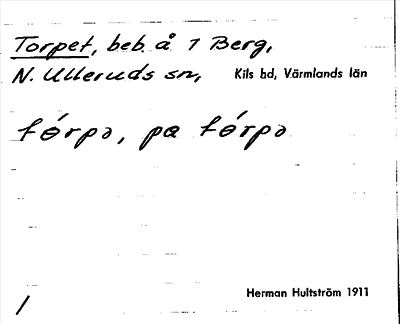 Torpet, beb. å 1 Berg,
N. Ulleruds sn, Kils hd, Värmlands län
tórpə, pa tórpə
Herman Hultström 1911
/